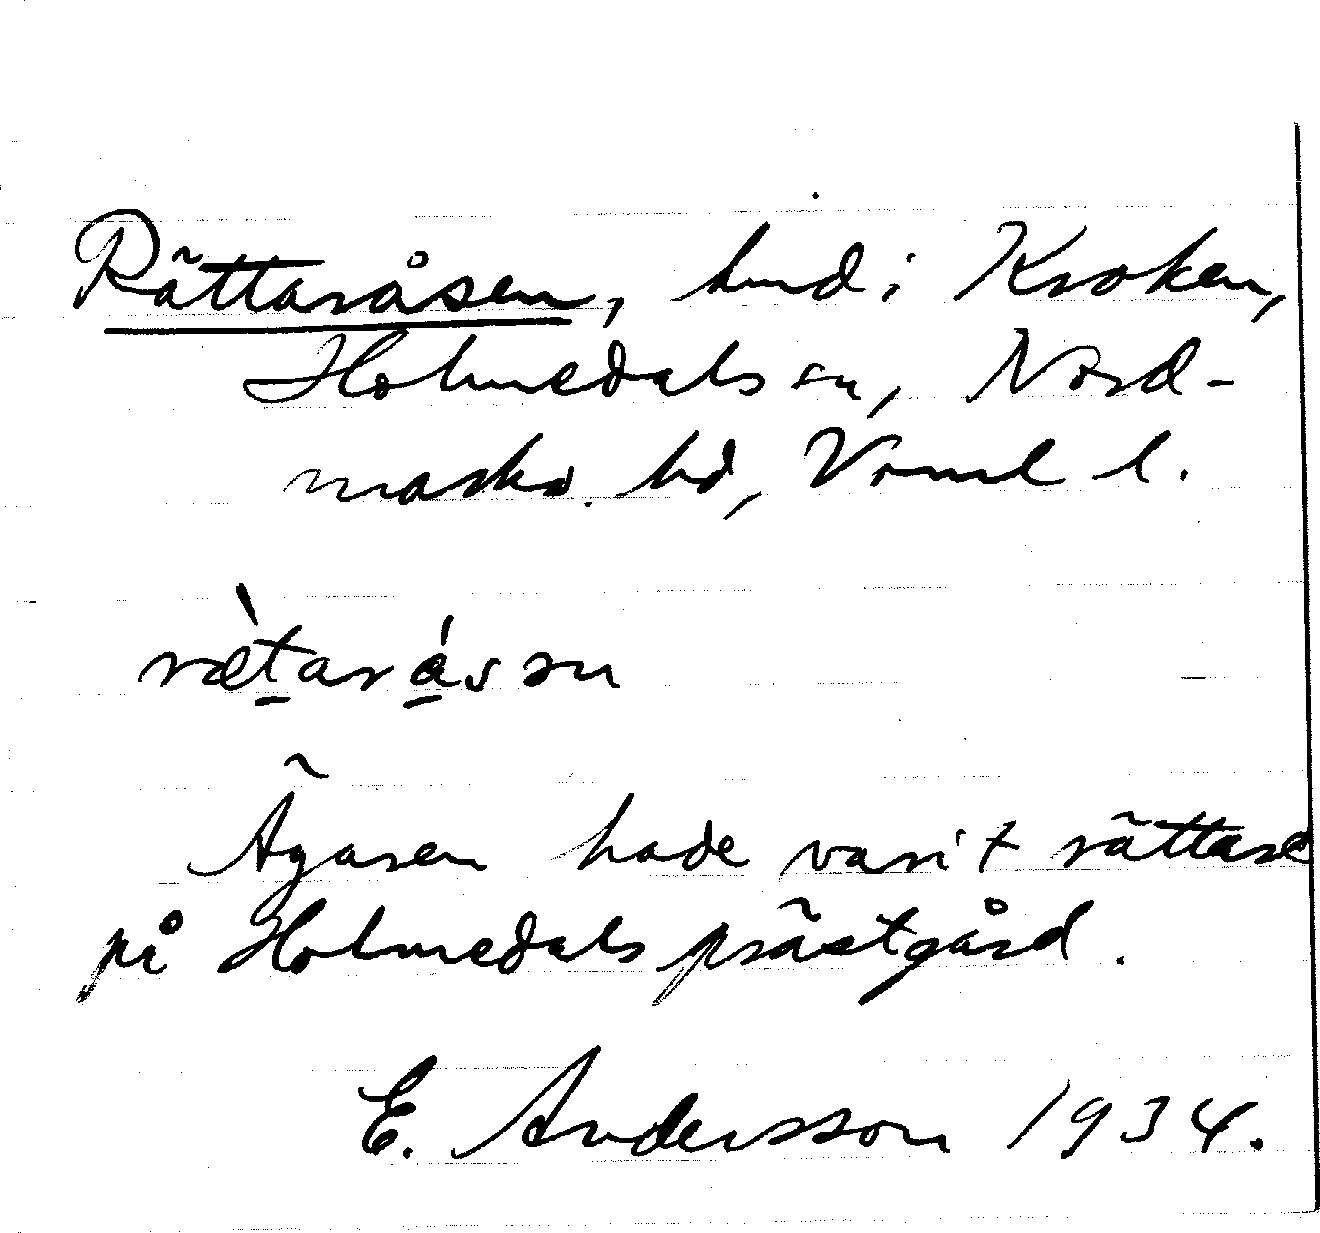 Rättaråsen, lund i Kroken,
Holmedals sn, Nord-
marks hd, Vrml l.
rætaråsən
Ägaren hade varit rättare
på Holmedals prästgård.
E. Andersson 1934.